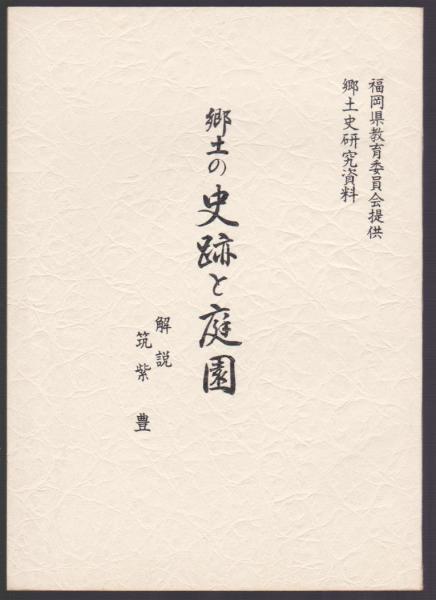 福岡県教育委員会提供
郷土史研究資料
郷土の史跡と庭園
解説
筑紫豊